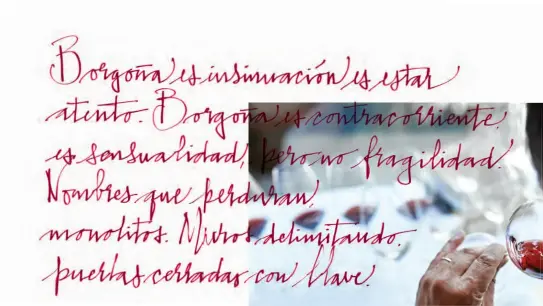 Borgoña es insinuación es estar
atento. Borgoña es contracorriente.
es sensualidad, pero no fragilidad.
Nombres que perduran,
monolitos. Muros delimitando.
puertas cerradas con llave.